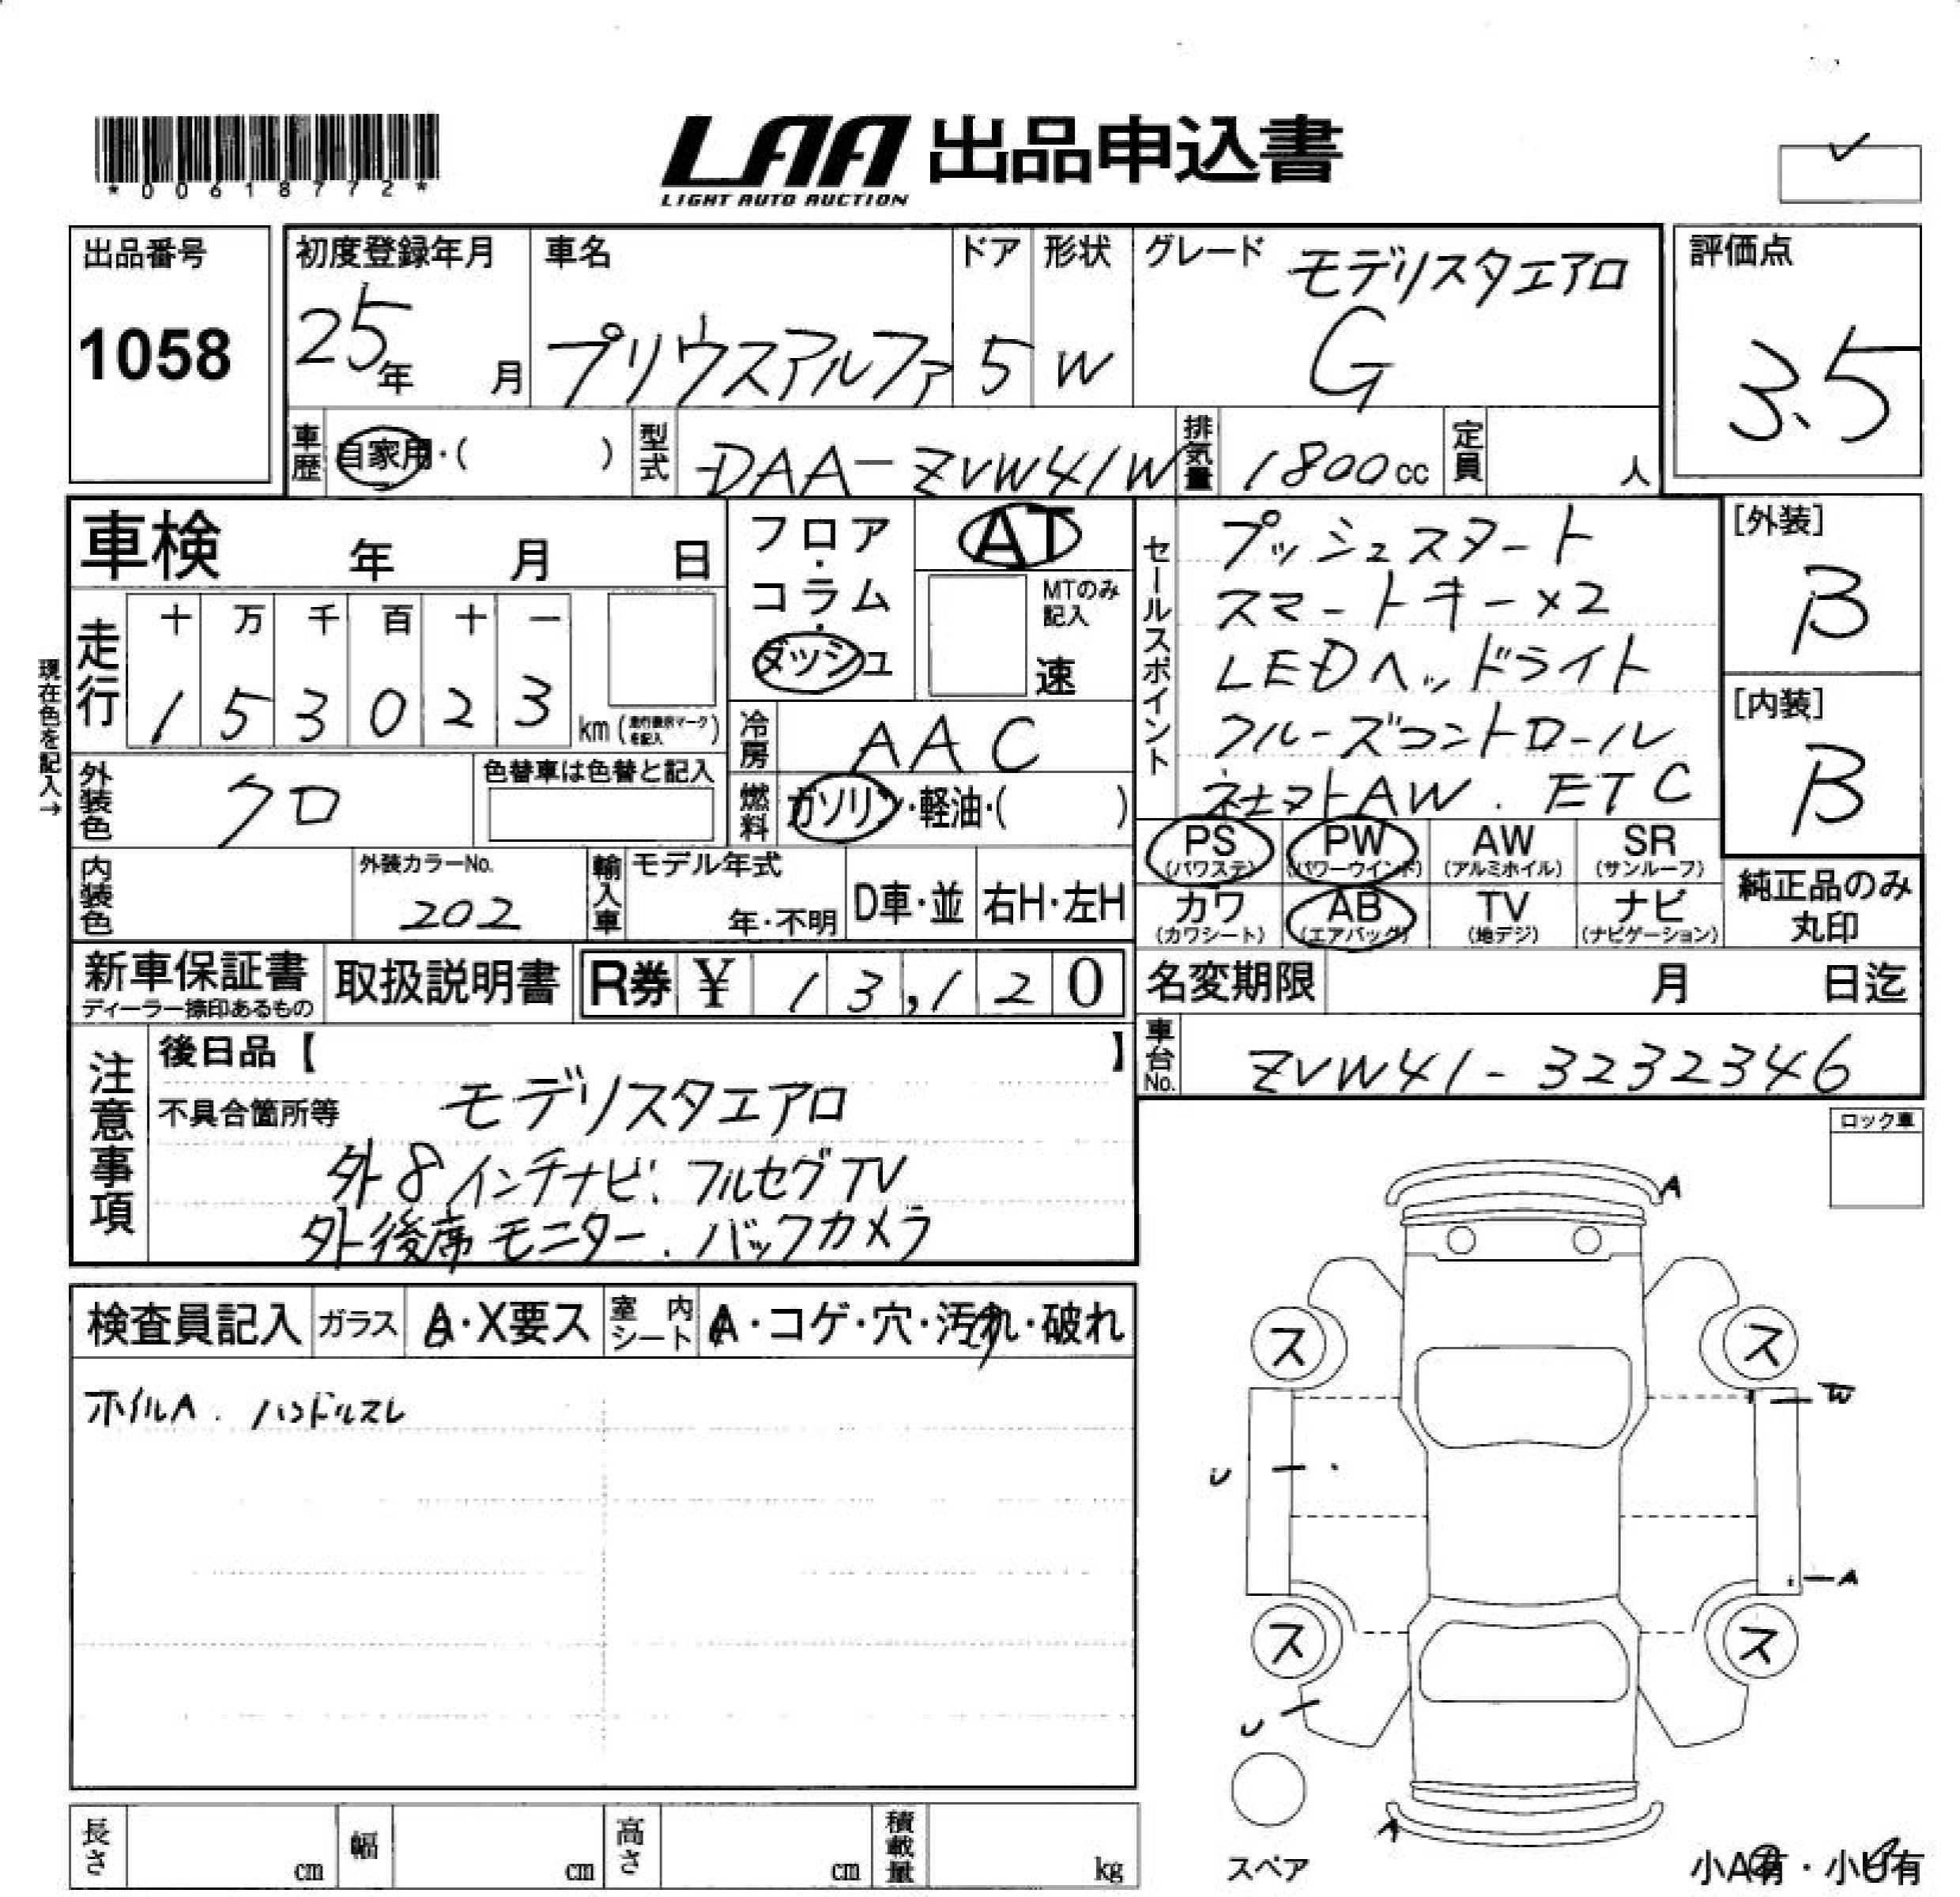 *00618772*
LAA 出品申込書
LIGHT AUTO AUCTION
出品番号
1058
初度登録年月
25年 月
車名
プリウスアルファ
ドア
5
形状
W
グレード
モデリスタエアロ
G
評価点
3.5
車歴
自家用・( )
型式
DAA-ZVW41W
排気量
1800cc
定員
人
車検 年 月 日
現在色を記入→
走行
十 万 千 百 十 一
1 5 3 0 2 3 km
フロア・コラム・ダッシュ
AT
MTのみ記入
速
冷房
AAC
燃料
ガソリン・軽油・( )
外装色
クロ
色替車は色替と記入
内装色
外装カラーNo.
202
輸入車
モデル年式
年・不明
D車・並
右H・左H
セールスポイント
プッシュスタート
スマートキー×2
LEDヘッドライト
クルーズコントロール
AW. ETC
[外装]
B
[内装]
B
PS (パワステ)
PW (パワーウインド)
AW (アルミホイル)
SR (サンルーフ)
カワ (カワシート)
AB (エアバッグ)
TV (地デジ)
ナビ (ナビゲーション)
純正品のみ丸印
新車保証書
ディーラー捺印あるもの
取扱説明書
R券 ¥ 13,120
名変期限 月 日迄
車台No.
ZVW41-3232346
注意事項
後日品【 】
不具合箇所等
モデリスタエアロ
外8インチナビ. フルセグTV
外後席モニター. バックカメラ
検査員記入
ガラス
A・X要ス
室内シート
A・コゲ・穴・汚れ・破れ
ホイルA. ハンドルスレ
ロック車
A
ス ス
W
U
A
ス ス
U
A
スペア
小A有・小U有
長さ cm
幅 cm
高さ cm
積載量 kg